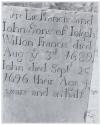 Here Lie Francis and
John Sons of Joseph
Wilton Francis died
Aug y 3d 1689
John died Sept 25
1696 their Age
years and